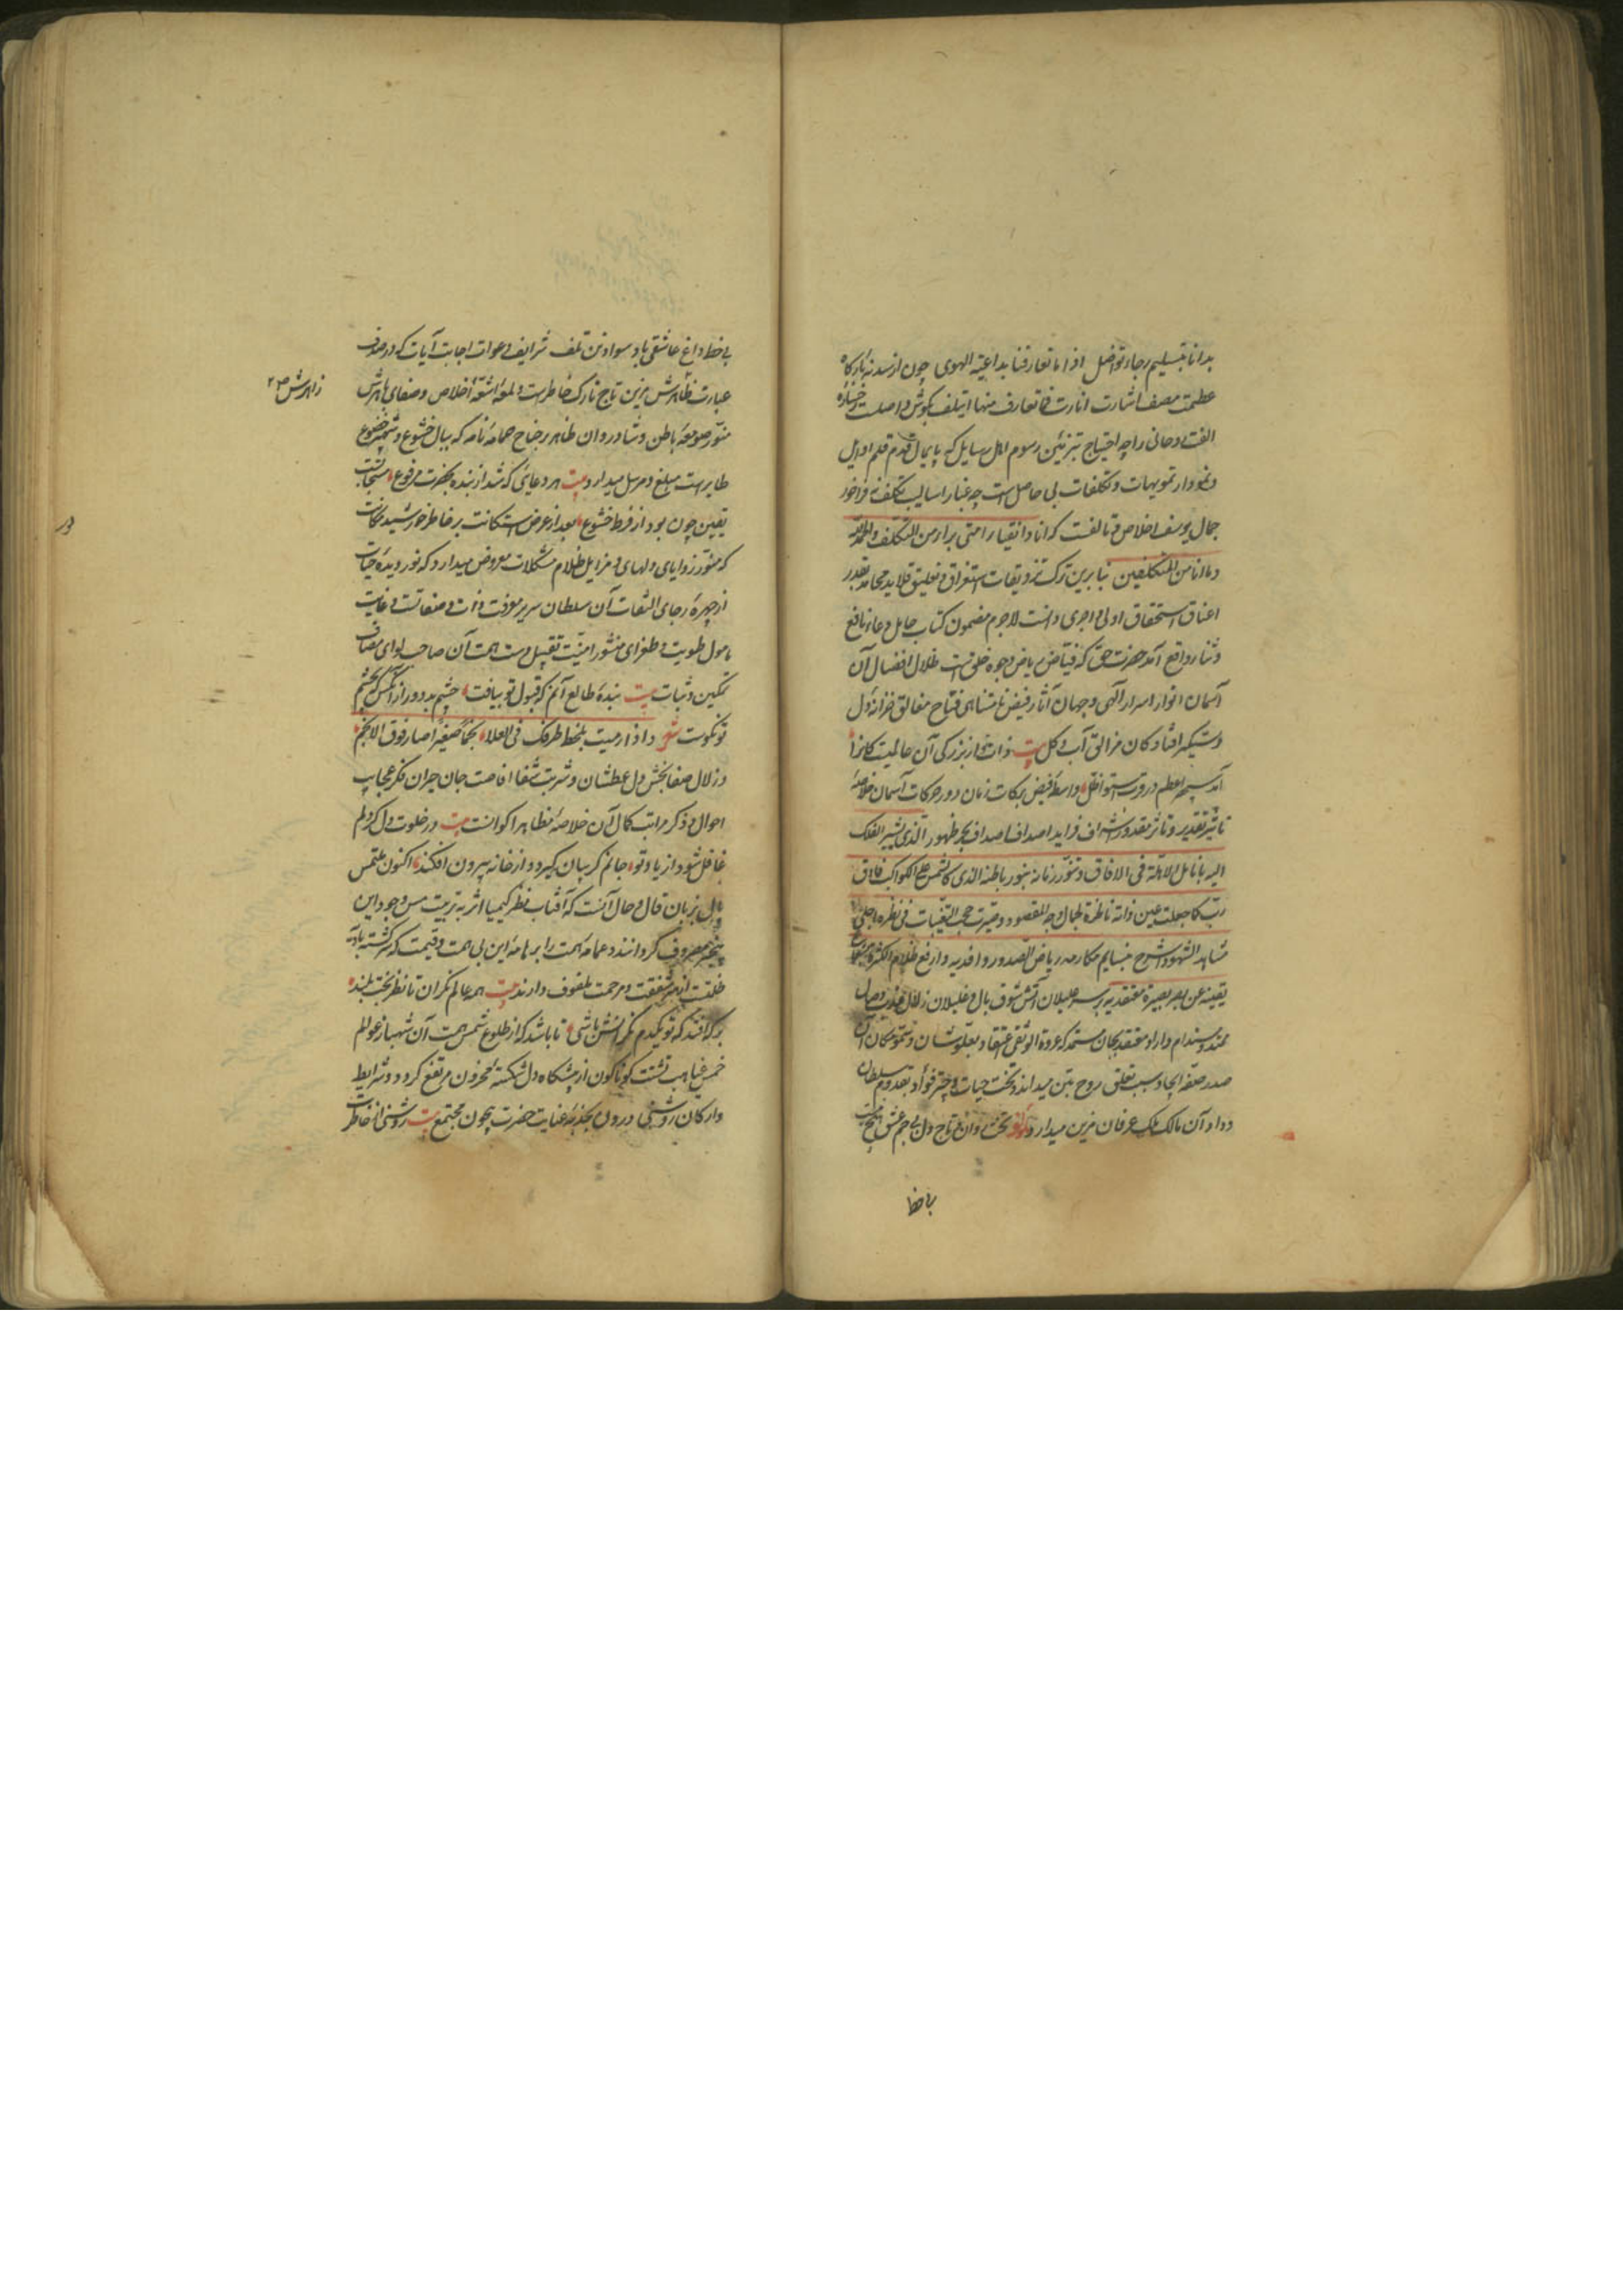 بدانا بتسلیم رجاء تواضل اذا ما تعارفنا بداعیة الهوی چون از سدنهٔ بارکاه
عظمت مصف اشارت انارت فما تعارف منها ائتلف بکوش واصلست رخساره
الفت روحانی را چه احتیاج بتزئین رسوم اهل رسایل که پایمال قدم قلم اوایل
و نمودار تمویهات و تکلفات بی حاصل است چه غبار اسالیب تکلف نه فراخور
جمال یوسف اخلاص و تالفست که انا و اتقیاء امتی براء من التکلف والحمدلله
و ما انا من المتکلفین بنا برین ترک تزویقات استغراق و تعلیق قلاید محامد بقدر
اعناق استحقاق اولی و اجری دانست لاجرم مضمون کتاب حامل دعاء نافع
و ثناء رواقع آمد حضرت حق که فیاض ریاض وجوه خلق است ظلال افضال آن
آسمان انوار اسرار الهی و جهان آثار فیض نامتناهی فتاح مغالق خزانهٔ دل
دستگیر افتادکان مزالق آب و کل بیت ذات تو از بزرکی آن عالمیست کانرا
آمد سپهر اعظم در و رتبت اقل واسطهٔ فیض برکات زمان و دور حرکات آسمان خلاصهٔ
تاثیر تقدیر و تاثر مقدور اشراف فراید اصداف بحر ظهور الذی یشیر الفلک
الیه بانامل الاهلة فی الافاق و تنور زمانه بنور باطنه الذی کالشمس علی الکواکب فاق
رب کما جعلت عین ذاته ناظرة لجمال وجه المقصود و صیرت حجب التغیبات فی نظره اجلی
مشاهد الشهود اشرح بنسایم مکارمه ریاض الصدور وافدیه و ارفع ظلام الکثرة
یقینه عن بصر بصیرة معتقدیه بر سر علیلان آتش شوق بال و غلیلان زلال عذب وصال
ممتد و مستدام داراد معتقد بجان مستمد که عروة الوثقی اعتقاد بعلو شان و سمو مکان آن
صدر صفهٔ ایجاد سبب تعلق روح بتن میداند و تخت حیات و چتر فؤاد بقدوم سلطان
وداد آن مالک ملک عرفان مزین میدارد تخت روان و تاج دل بی جم عشق
بی خط
بی خط داغ عاشقی باد سواد تن تلف شرایف دعوات اجابت آیات که در صدف
عبارت ظاهرش مزین تاج تارک خاطرست و لمعهٔ اشعهٔ اخلاص و صفای باهرش
زاهرش ص ۲۲
منور صومعهٔ باطن و شادروان ظاهر بر جناح حمامهٔ نامه که ببال خشوع و شهپر خضوع
طایرست مبلغ و مرسل میدارد بیت هر دعایی که شد از بنده بحضرت مرفوع مستجابست
یقین چون بود از فرط خشوع بعد از عرض استکانت بر خاطر خورشید مکانت
که منور زوایای دلهای و مزایل ظلام مشکلات معروض میدارد که نور دیدهٔ حیات
از چهرهٔ رجای التفات آن سلطان سریر معرفت ذات و صفاتست و غایت
مامول طویت و طغرای منشور امنیت تقبیل دست همت آن صاحب لوای مصاف
تمکین و ثبات بیت بندهٔ طالع آنم که قبول تو بیافت چشم بد دور از آنکس که بچشم
تو نکوست شعر و اذا رمیت بلحظ طرفک فی العلاء نجما صغیرا صار فوق الانجم
و زلال صفابخش دل عطشان و شربت شفا افاضت جان حیران فکر عجایب
احوال و ذکر مراتب کمال آن خلاصهٔ مظاهر اکوانست بیت در خلوت دل کر دلم
غافل شود از یاد تو جانم کریبان کیرد و از خانه بیرون افکند اکنون ملتمس
بال بزبان قال و حال آنست که آفتاب نظر کیمیا اثر به تربیت مس وجود این
فقیر مصروف کردانند و عمامهٔ همت را بر هامهٔ این بی همت و قیمت که سرکشته بادیه
خلقتست از سر شفقت و مرحمت ملفوف دارند بیت همه عالم نکران تا نظر بخت بلند
بر که افتد که تو یکدم نکرانش باشی تا باشد که از طلوع شمس همت آن شهباز عوالم
خمس غیاهب تشتت کوناکون از مشکاه دل شکسته محزون مرتفع کردد و شرایط
و ارکان روشنی درون بجذبهٔ عنایت حضرت بیچون مجتمع بیت روشنی از خاطرت